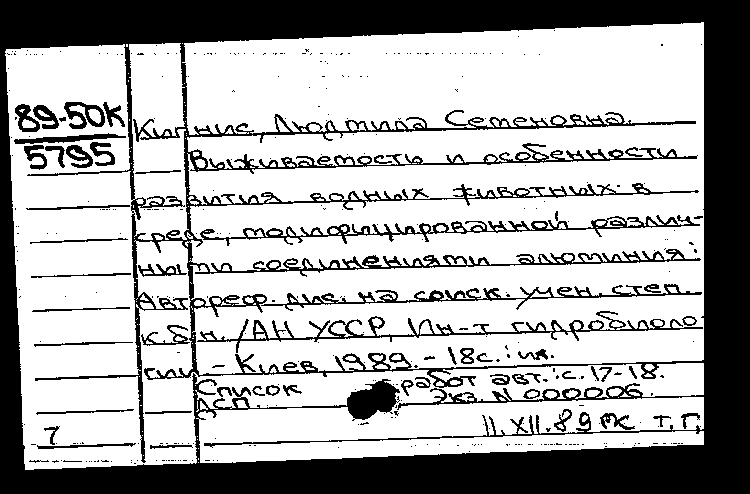 89-50К
5795
Кипнис, Людмила Семеновна.
Выживаемость и особенности
развития водных животных в
среде, модифицированной различ-
ными соединениями алюминия:
Автореф. дис. на соиск. учен. степ.
к.б.н. /АН УССР, Ин-т гидробиоло-
гии - Киев, 1989. - 18с.: ил.
Список работ авт.: с. 17-18.
ДСП. Экз. N 000006.
7 11.XII.89 т.г.